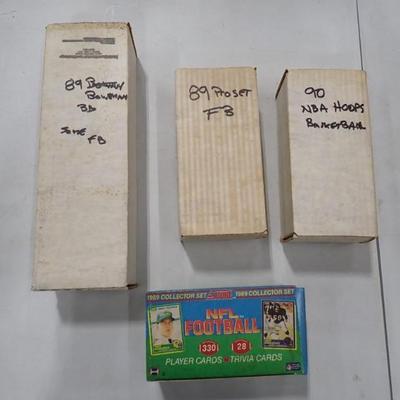 89
BOWMAN
BB
SOME
FB
89 PROSET
FB
90
NBA HOOPS
BASKETBALL
1989 COLLECTOR SET SCORE 1989 COLLECTOR SET
NFL
FOOTBALL
330 28
PLAYER CARDS • TRIVIA CARDS